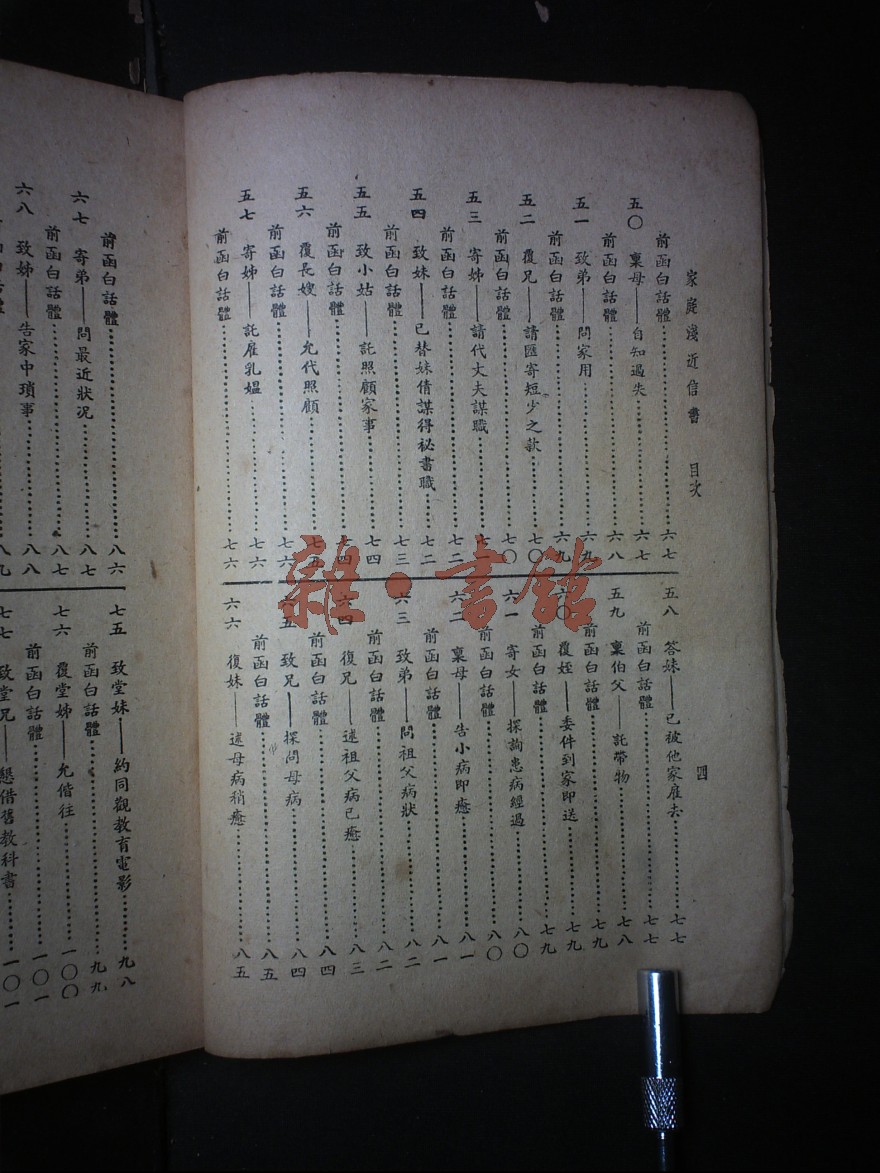 家庭淺近信書 目次
四
前函白話體……六七
五〇 稟母——自知過失……六七
前函白話體……六八
五一 致弟——問家用……六九
前函白話體……六九
五二 覆兄——請匯寄短少之款……七〇
前函白話體……七〇
五三 寄姊——請代丈夫謀職……七一
前函白話體……七二
五四 致妹——已替妹倩謀得祕書職……七二
前函白話體……七三
五五 致小姑——託照顧家事……七四
前函白話體……七四
五六 覆長嫂——允代照顧……七五
前函白話體……七六
五七 寄姊——託雇乳媼……七六
前函白話體……七六
五八 答妹——已被他家雇去……七七
前函白話體……七七
五九 稟伯父——託帶物……七八
前函白話體……七九
六〇 覆姪——委件到家即送……七九
前函白話體……七九
六一 寄女——探詢患病經過……八〇
前函白話體……八〇
六二 稟母——告小病即癒……八一
前函白話體……八一
六三 致弟——問祖父病狀……八二
前函白話體……八二
六四 復兄——述祖父病已癒……八三
前函白話體……八四
六五 致兄——探問母病……八四
前函白話體……八五
六六 復妹——述母病稍癒……八五
前函白話體……八六
六七 寄弟——問最近狀況……八七
前函白話體……八七
六八 致姊——告家中瑣事……八八
八九
七五 致堂妹——約同觀教育電影……九八
前函白話體……九九
七六 覆堂姊——允偕往……一〇〇
前函白話體……一〇一
七七 致堂兄——懇借舊教科書……一〇一
雜·書館